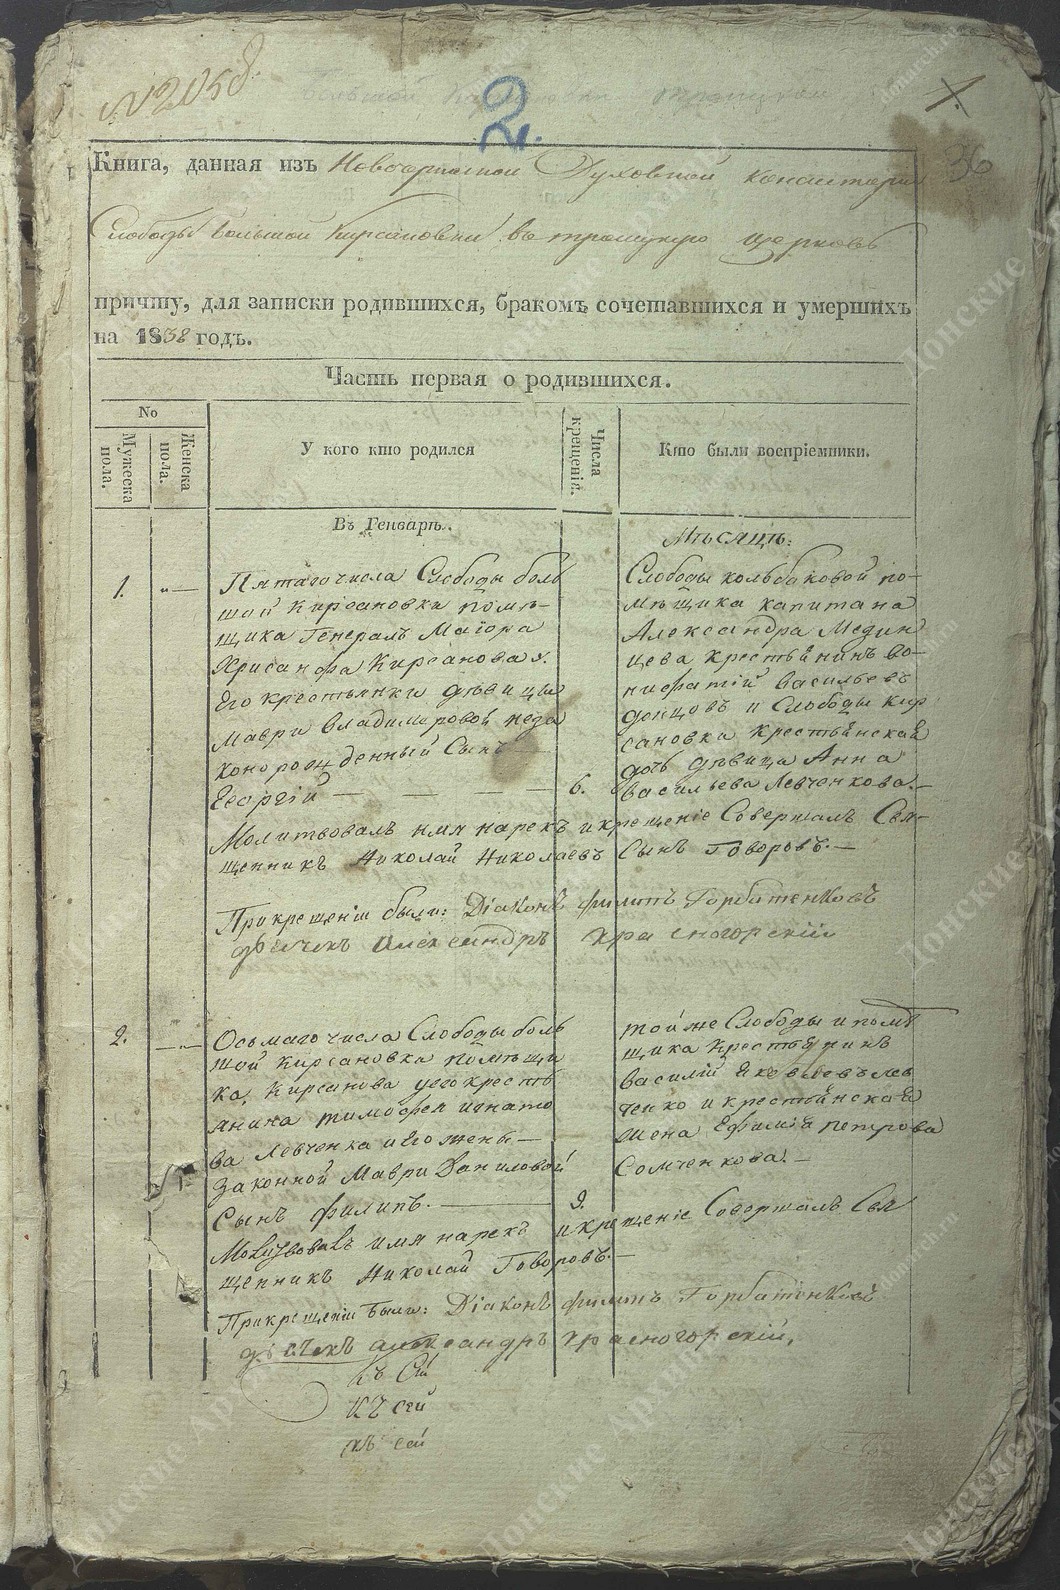 № 2058.
2.
36
Книга, данная изъ Новочеркаской Духовной Консисторіи
Слободы Большой Кирсановки въ троицкую церковь
причту, для записки родившихся, бракомъ сочетавшихся и умершихъ
на 1838 годъ.
Часть первая о родившихся.
No
Мужеска пола.
Женска пола.
У кого кто родился
Числа крещенія.
Кто были воспріемники.
Въ Генварѣ.
Мѣсяцѣ:
1.
Пятаго числа Слободы боль
шой Кирсановки помѣ-
щика Генералъ Маіора
Хрисанфа Кирсанова у
Его крестьянки дѣвицы
Маври Владимировой неза
конорожденный Сынъ
Георгій — — — —
6.
Слободы кольбаковой по-
мѣщика капитана
Александра Медин
цева крестьянинъ Во-
нифатій Васильевъ
донцовъ и Слободы Кир
сановки крестьянской
дочь дѣвица Анна
Васильева Левченкова.—
Молитвовалъ имя нарекъ и крещеніе Совершалъ Свя-
щенникъ Николай Николаевъ Сынъ Говоровъ.—
При крещеніи были: Діаконъ филипъ Горбатенковъ
дьячекъ Александръ Красногорскій
2.
Осьмаго числа Слободы боль
шой Кирсановки помѣщи
ка, Кирсанова у его кресть
янина тимофея игнато
ва Левченка и Его жены—
Законной Маври Даниловой
Сынъ филипъ.—
9.
той же Слободы и помѣ
щика крестьянинъ
василій Яковлевъ лев
ченко и крестьянская
жена Ефимія петрова
Сомченкова.—
Молитвовалъ имя нарекъ и крещеніе Совершалъ Свя
щенникъ Николай Говоровъ.—
При крещеніи были: Діаконъ филипъ Горбатенковъ
дьячекъ александръ Красногорскій,
къ Сей
Къ сей
къ сей